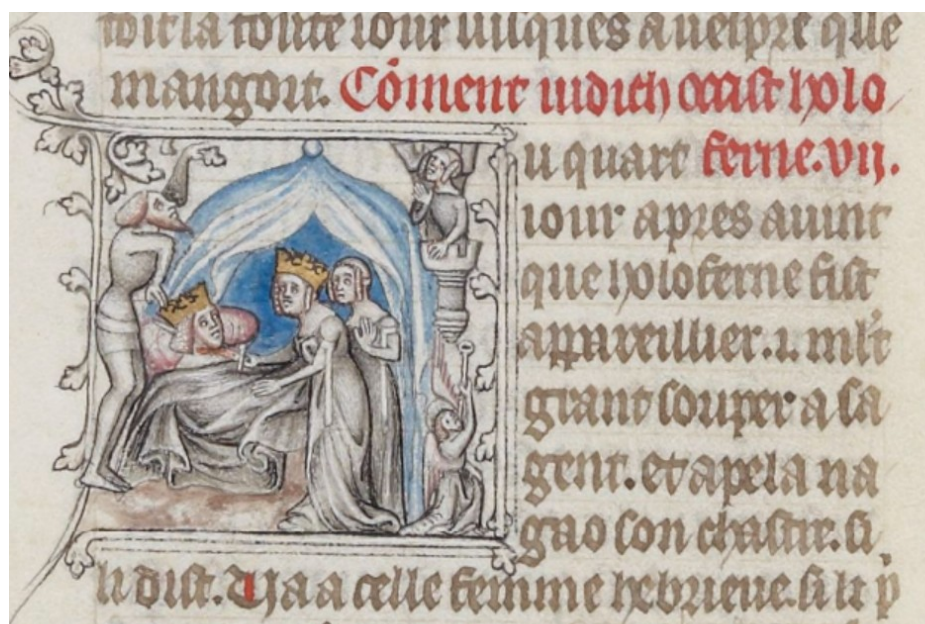 toit la toute iour iusques a uespre que
mangoit. Cōment iudith occist holo
u quart ferne.vij.
iour apres auint
que holoferne fist
appareillier.i. ml't
grant souper a sa
gent. et apela na
gao son chastre. si
li dist. Va a celle femme hebrieue. si li p